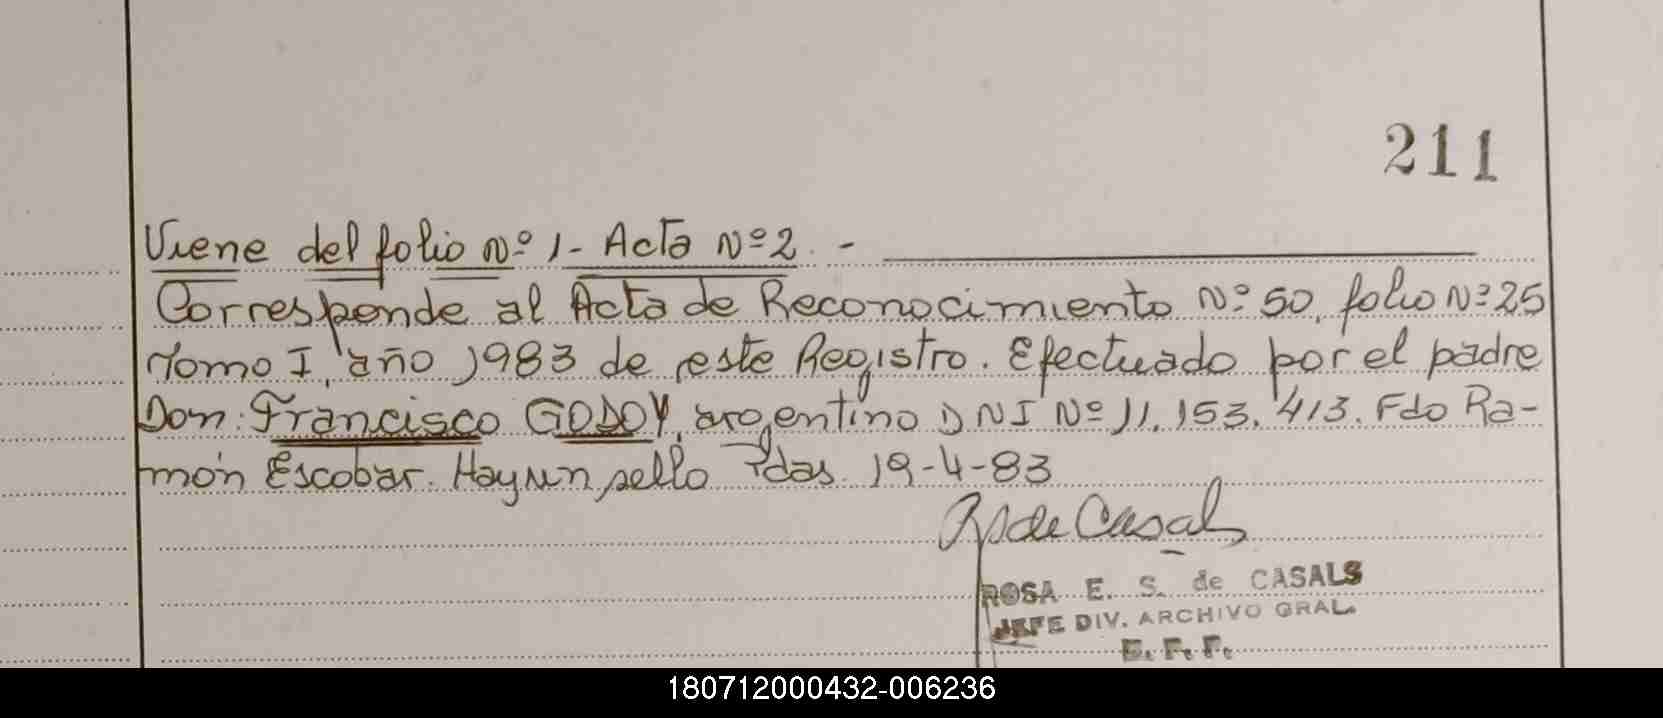 211
Viene del folio Nº 1- Acta Nº 2. -
Corresponde al Acta de Reconocimiento Nº 50, folio Nº 25
Tomo I, año 1983 de este Registro. Efectuado por el padre
Don: Francisco GODOY, argentino DNI Nº 11.153.413. Fdo Ra-
món Escobar. Hay un sello Pdas. 19-4-83
de Casals
ROSA E. S. de CASALS
JEFE DIV. ARCHIVO GRAL.
180712000432-006236